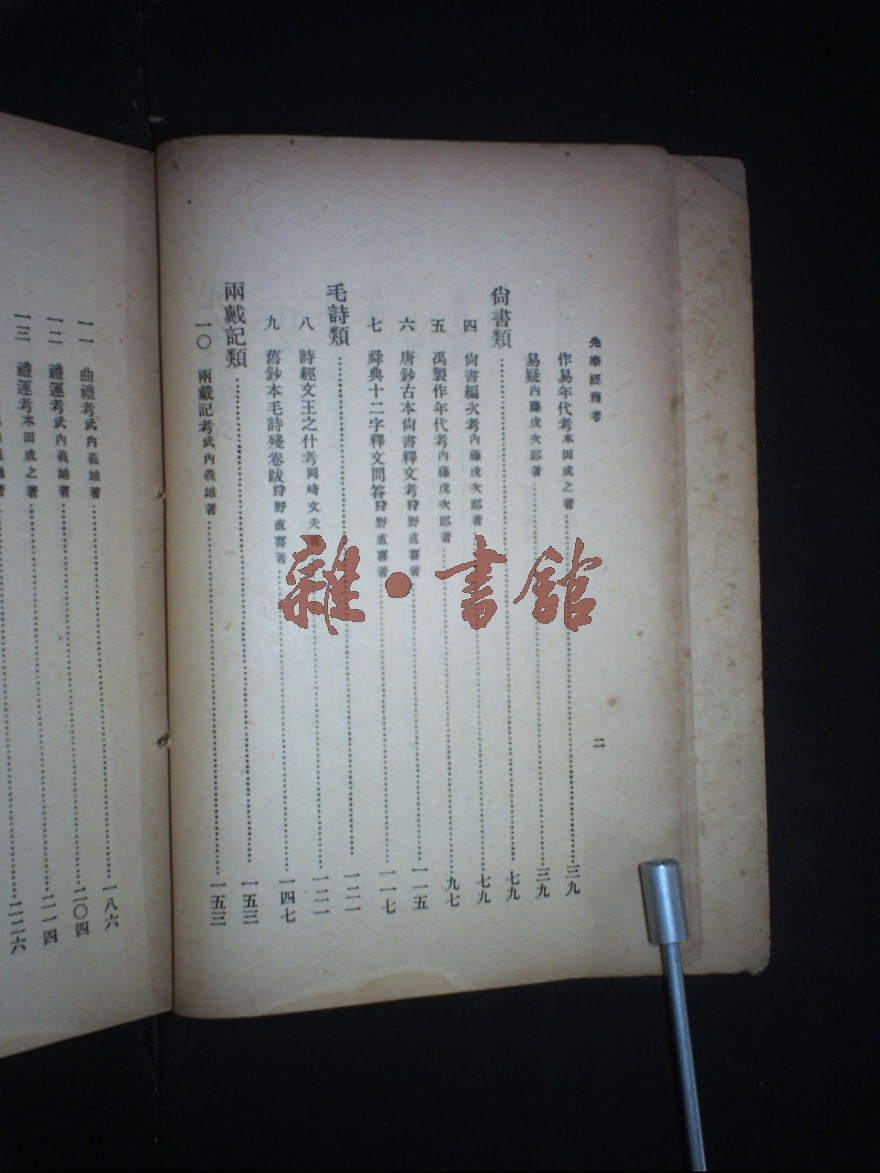 先秦經籍考
二
作易年代考本田成之著……三九
易疑內藤虎次郎著……三九
尙書類……七九
四 尙書編次考內藤虎次郎著……七九
五 禹製作年代考內藤虎次郎著……九七
六 唐鈔古本尙書釋文考狩野直喜著……一一五
七 舜典十二字釋文問答狩野直喜著……一一七
毛詩類……一二一
八 詩經文王之什考岡崎文夫……一二一
九 舊鈔本毛詩殘卷跋狩野直喜著……一四七
兩戴記類……一五三
一〇 兩戴記考武內義雄著……一五三
一一 曲禮考武內義雄著……一八六
一二 禮運考武內義雄著……二〇四
一三 禮運考本田成之著……二一四
義雄著……二二六
雜·書館